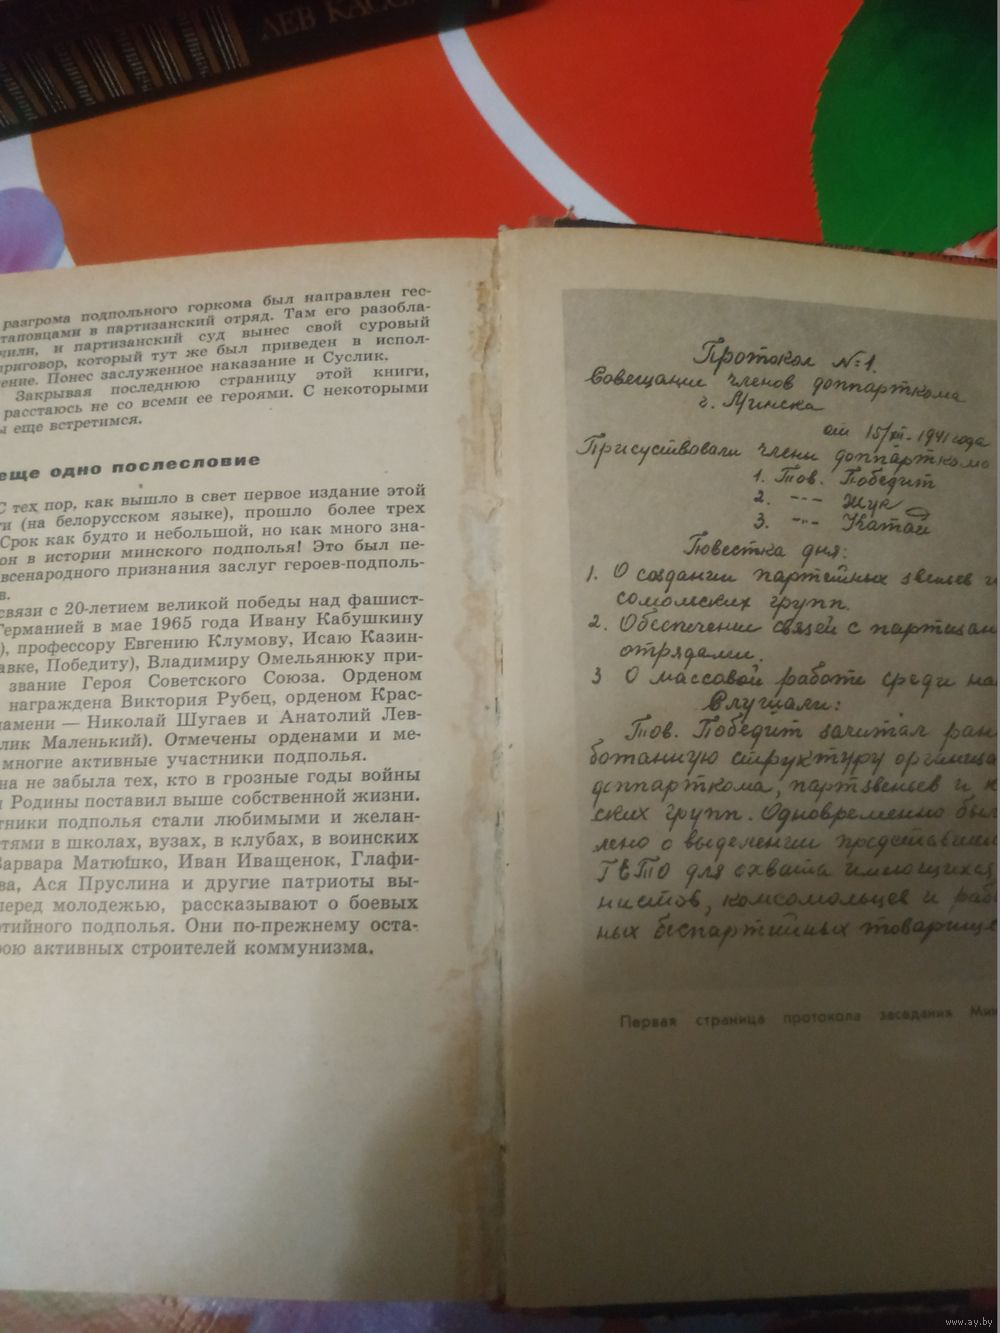 ЛЕВ КАСС
разгрома подпольного горкома был направлен гес-
таповцами в партизанский отряд. Там его разобла-
чили, и партизанский суд вынес свой суровый
приговор, который тут же был приведен в испол-
ение. Понес заслуженное наказание и Суслик.
Закрывая последнюю страницу этой книги,
расстаюсь не со всеми ее героями. С некоторыми
ы еще встретимся.
еще одно послесловие
С тех пор, как вышло в свет первое издание этой
ги (на белорусском языке), прошло более трех
Срок как будто и небольшой, но как много зна-
он в истории минского подполья! Это был пе-
всенародного признания заслуг героев-подполь-
в.
связи с 20-летием великой победы над фашист-
Германией в мае 1965 года Ивану Кабушкину
), профессору Евгению Клумову, Исаю Казин-
авке, Победиту), Владимиру Омельянюку при-
звание Героя Советского Союза. Орденом
награждена Виктория Рубец, орденом Крас-
намени — Николай Шугаев и Анатолий Лев-
лик Маленький). Отмечены орденами и ме-
многие активные участники подполья.
на не забыла тех, кто в грозные годы войны
и Родины поставил выше собственной жизни.
тники подполья стали любимыми и желан-
тями в школах, вузах, в клубах, в воинских
Варвара Матюшко, Иван Иващенок, Глафи-
ва, Ася Пруслина и другие патриоты вы-
перед молодежью, рассказывают о боевых
тийного подполья. Они по-прежнему оста-
рою активных строителей коммунизма.
Протокол №1.
Совещание членов доппарткома
г. Минска
от 15/XII-1941 года
Присуствовали члены доппарткома
1. Тов. Победит
2. -"- Жук
3. -"- Катай
Повестка дня:
1. О создании партейных звеньев и
сомолских групп.
2. Обеспечение связей с партизан
отрядами.
3 О массовой работе среди на
Слушали:
Тов. Победит зачитал
ботанную структуру организа
доппарткома, партзвеньев и к
ских групп. Одновременно был
лено о выделении представителе
ГЕТО для охвата имеющихся
нистов, комсомольцев и
ных беспартийных товарище
Первая страница протокола заседания Мин
www.ay.by